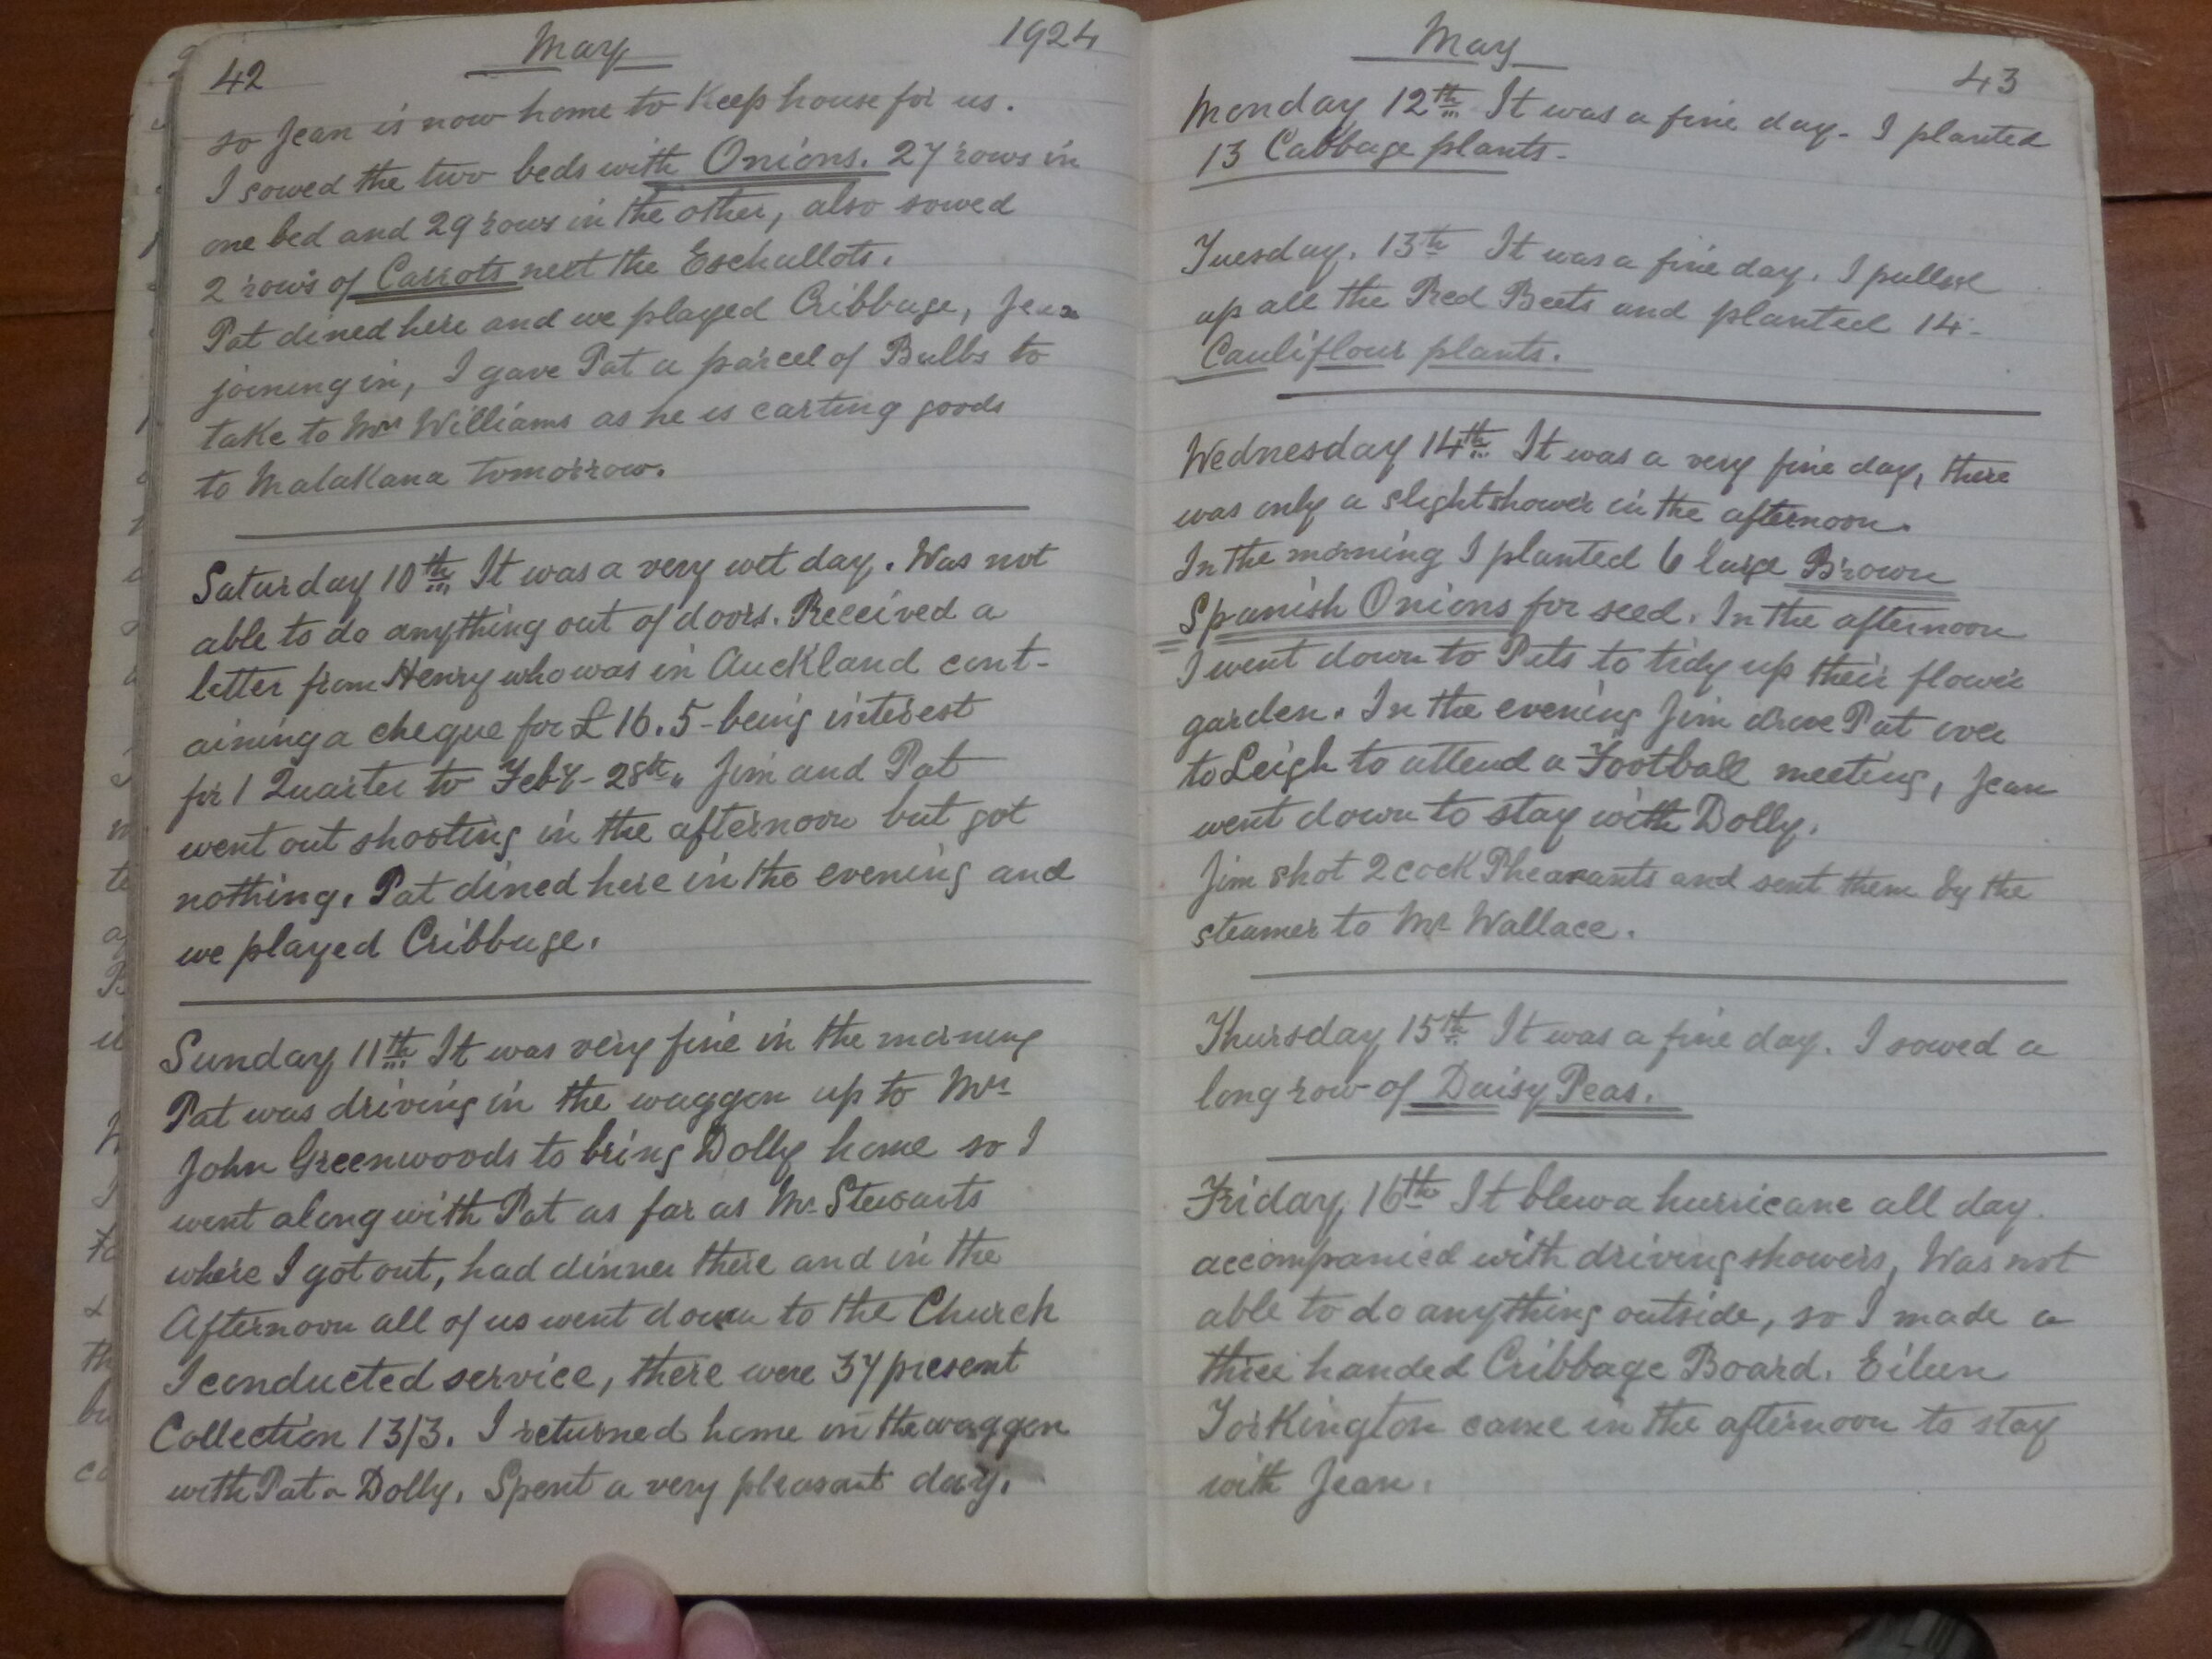 42 May 1924
so Jean is now home to Keep house for us.
I sowed the two beds with Onions. 27 rows in
one bed and 29 rows in the other, also sowed
2 rows of Carrots next the Eschallots.
Pat dined here and we played Cribbage, Jean
joining in, I gave Pat a parcel of Bulbs to
take to Mrs Williams as he is carting goods
to Matakana tomorrow.
Saturday 10th It was a very wet day. Was not
able to do anything out of doors. Received a
letter from Henry who was in Auckland cont-
aining a cheque for £16.5- being interest
for 1 Quarter to Feby- 28th. Jim and Pat
went out shooting in the afternoon but got
nothing. Pat dined here in the evening and
we played Cribbage.
Sunday 11th It was very fine in the morning
Pat was driving in the waggon up to Mrs
John Greenwoods to bring Dolly home so I
went along with Pat as far as Mr Stewarts
where I got out, had dinner there and in the
Afternoon all of us went down to the Church
I conducted service, there were 37 present
Collection 13/3. I returned home in the waggon
with Pat & Dolly. Spent a very pleasant day.
May 43
Monday 12th It was a fine day- I planted
13 Cabbage plants-
Tuesday. 13th It was a fine day. I pulled
up all the Red Beets and planted 14-
Cauliflour plants.
Wednesday 14th It was a very fine day, there
was only a slight shower in the afternoon.
In the morning I planted 6 large Brown
Spanish Onions for seed. In the afternoon
I went down to Pats to tidy up their flower
garden. In the evening Jim drove Pat over
to Leigh to attend a Football meeting, Jean
went down to stay with Dolly.
Jim shot 2 cock Pheasants and sent them by the
steamer to Mr Wallace.
Thursday 15th It was a fine day. I sowed a
long row of Daisy Peas.
Friday 16th It blew a hurricane all day.
accompanied with driving showers, Was not
able to do anything outside, so I made a
three handed Cribbage Board. Eileen
Torkington came in the afternoon to stay
with Jean.